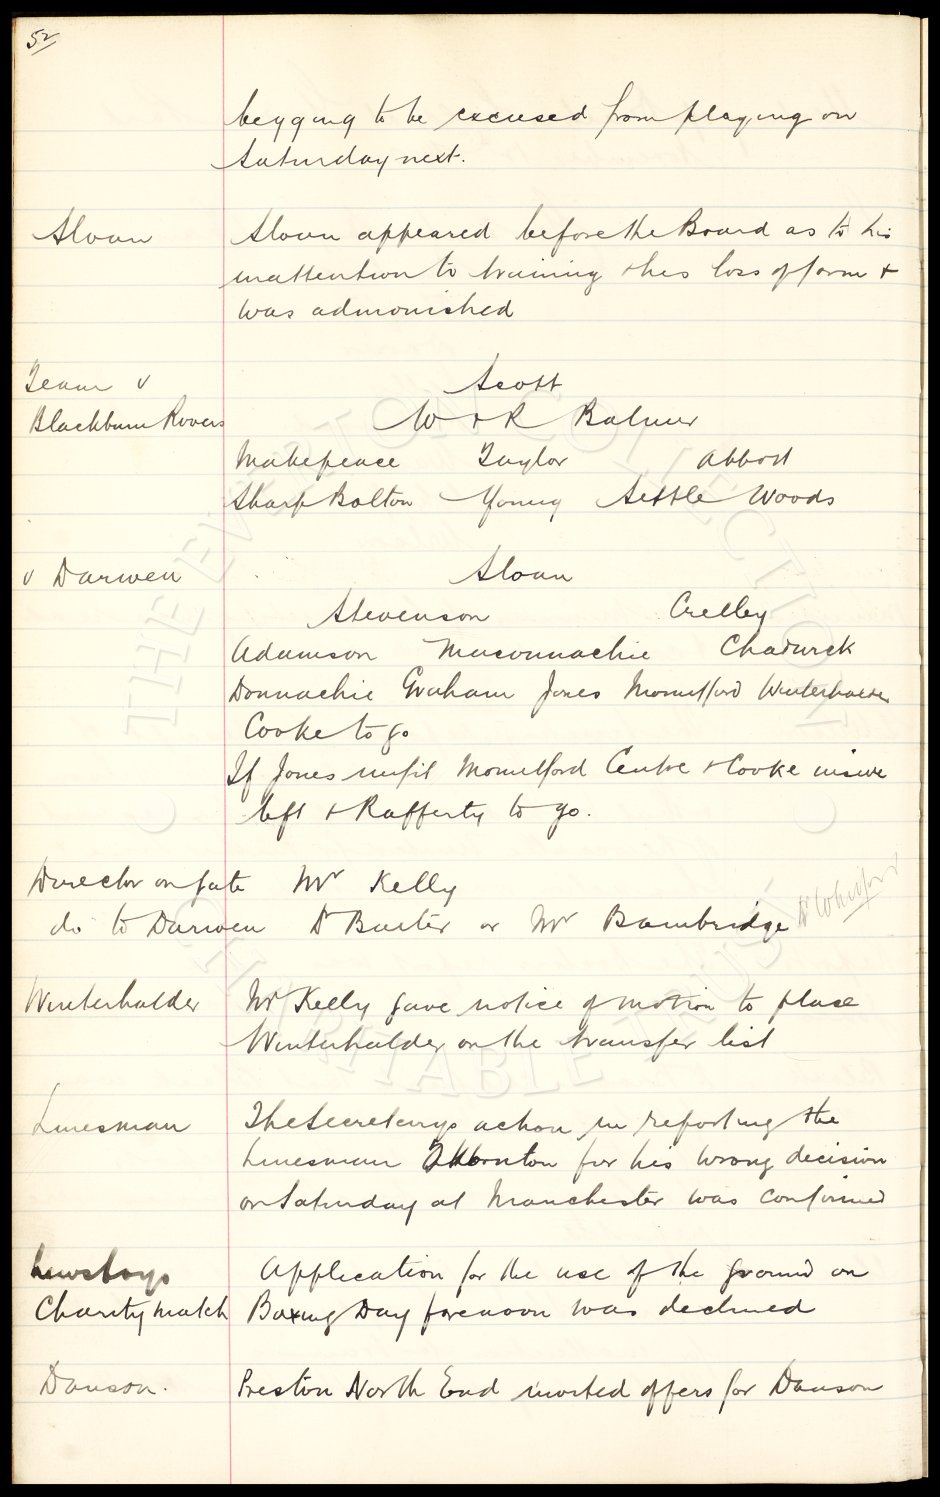 52
begging to be excused from playing on
Saturday next.
Sloan Sloan appeared before the Board as to his
inattention to training & his loss of form &
was admonished
Team v Scott
Blackburn Rovers W & R Balmer
Makepeace Taylor Abbott
Sharp Bolton Young Settle Woods
v Darwen Sloan
Stevenson Crelley
Adamson Maconnachie Chadwick
Donnachie Graham Jones Mountford Winterhalder
Cooke to go
If Jones unfit Mountford Centre & Cooke inside
left & Rafferty to go.
Director on gate Mr Kelly
do to Darwen Dr Baxter or Mr Bainbridge Dr Whitford
Winterhalder Mr Kelly gave notice of motion to place
Winterhalder on the transfer list
Linesman The Secretarys action in reporting the
Linesman Thornton for his wrong decision
on Saturday at Manchester was confirmed
Newsboys Application for the use of the ground on
Charity match Boxing Day forenoon was declined
Danson. Preston North End invited offers for Danson
THE EVERTON COLLECTION
CHARITABLE TRUST